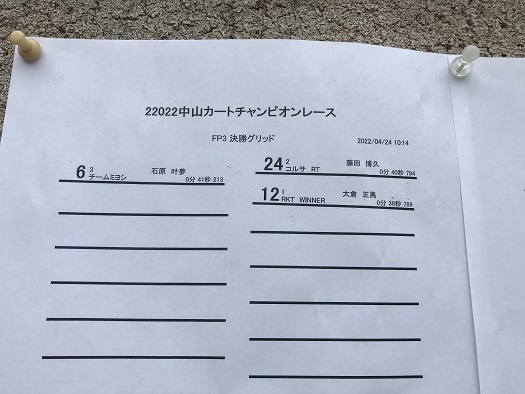 22022中山カートチャンピオンレース
FP3 決勝グリッド
2022/04/24 10:14
6 3 石原 叶夢
チームミヨシ 0分 41秒 213
24 2 藤田 博久
コルサ RT 0分 40秒 794
12 1 大倉 正馬
RKT WINNER 0分 39秒 789